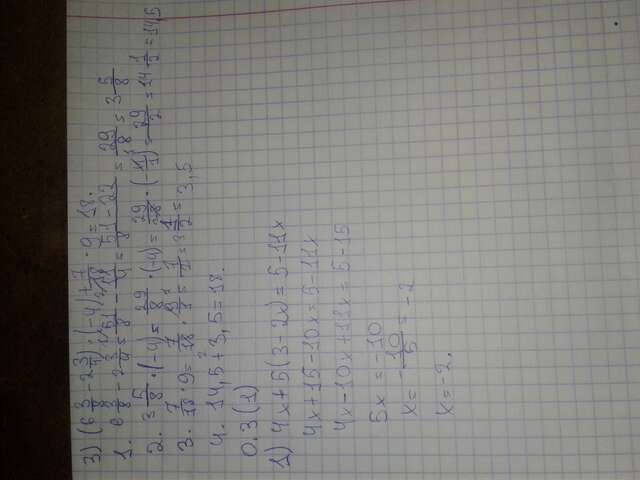 3) (6 3/8 - 2 3/4) · (-4) + 7/18 · 9 = 18.
1. 6 3/8 - 2 3/4 = 51/8 - 11/4 = 51-22/8 = 29/8 = 3 5/8
2. 3 5/8 · (-4) = 29/8 · (-4) = 29/8 · (-4/1) = 29/2 = 14 1/2 = 14,5
3. 7/18 · 9 = 7/18 · 9/1 = 7/2 = 3 1/2 = 3,5
4. 14,5 + 3,5 = 18.
0.3(1)
1) 4x + 5(3 - 2x) = 5 - 11x
4x + 15 - 10x = 5 - 11x
4x - 10x + 11x = 5 - 15
5x = -10
x = -10/5 = -2
x = -2.